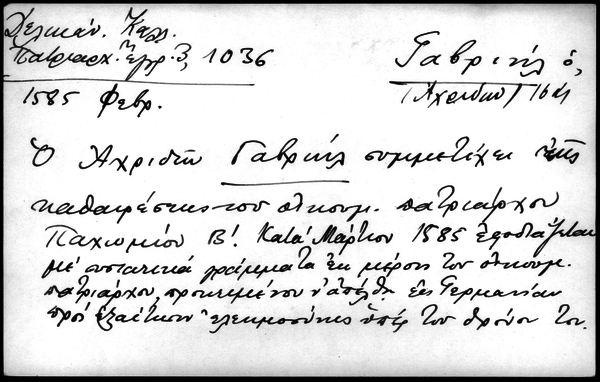 Δελικάν. Καλλ.
Πατριαρχ. Ἔγγρ. 3, 1036
Γαβριήλ ὁ,
Ἀχριδῶν
1585 Φεβρ.
Ὁ Ἀχριδῶν Γαβριήλ συμμετέχει τῆς
καθαιρέσεως τοῦ οἰκουμ. πατριάρχου
Παχωμίου Β'. Κατά Μάρτιον 1585 ἐφοδιάζεται
μέ συστατικά γράμματα ἐκ μέρους τοῦ οἰκουμ.
πατριάρχου, προκειμένου ν' ἀπέλθῃ εἰς Γερμανίαν
πρός ἐξαίτησιν ἐλεημοσύνης ὑπέρ τοῦ θρόνου του.